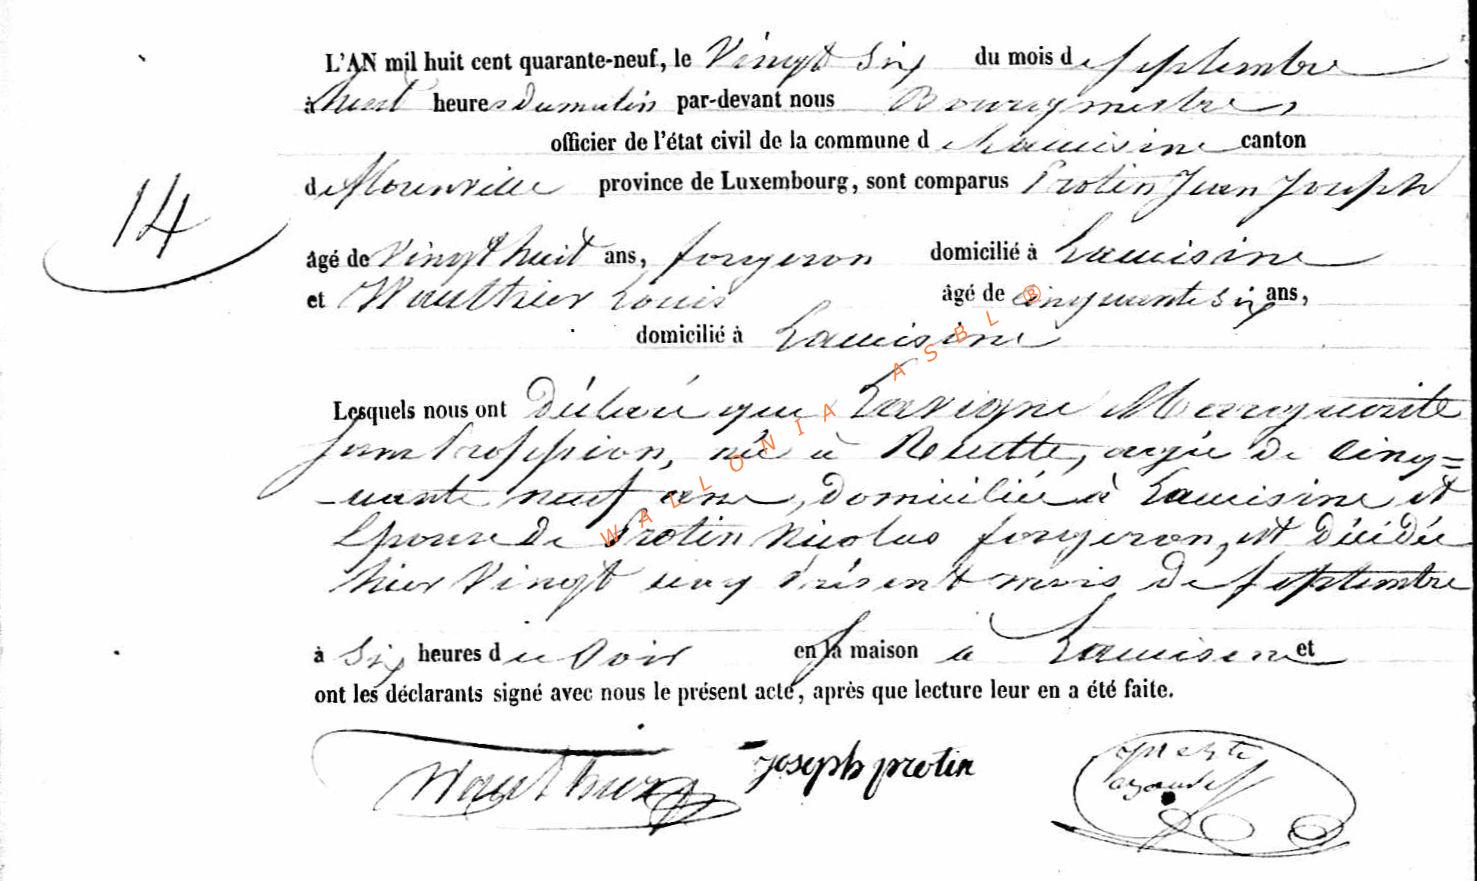 L'AN mil huit cent quarante-neuf, le Vingt Six du mois de septembre
à huit heures du matin par-devant nous Bourgmestre,
officier de l'état civil de la commune de Lacuisine canton
de Florenville province de Luxembourg, sont comparus Protin Jean Joseph
14
âgé de Vingt huit ans, forgeron domicilié à Lacuisine
et Wauthier Louis âgé de cinquante six ans,
domicilié à Lacuisine
Lesquels nous ont Déclaré que Lavigne Marguerite
née à Ruette, agée de Cinq=
-uante neuf ans, Domiciliée à Lacuisine et
Epouse de Protin Nicolas forgeron, est Décédée
hier Vingt cinq présent mois de septembre
à Six heures du Soir en la maison a Lacuisine et
ont les déclarants signé avec nous le présent acte, après que lecture leur en a été faite.
Wauthier joseph protin
WALLONIA ASBL ®